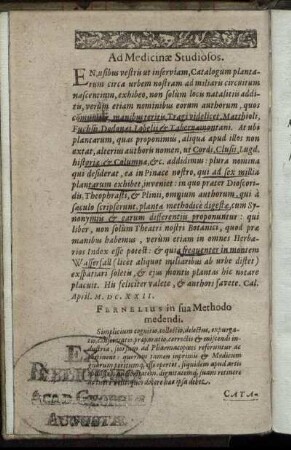 Ad Medicinæ Studiosos.
EN, usibus vestris ut inserviam, Catalogum planta-
rum circa urbem nostram ad miliaris circuitum
nascentium, exhibeo, non solùm locu natalitiis additis,
verùm etiam nominibus eorum authorum, quos
communiter manibus teritis, Tragi videlicet, Matthioli,
Fuchsii, Dodonæi, Lobelii & Tabernæmontani. At ubi
plantarum, quas proponimus, aliqua apud hos illos non
extat, alterius authoris nomen, ut Cordi, Clusii, Lugd.
historiæ & Columnæ, &c. addidimus: plura nomina
qui desiderat, ea in Pinace nostro, qui ad sex millia
plantarum exhibet, inveniet: in quo præter Dioscori-
dis, Theophrasti, & Plinii, omnium authorum, qui à
sæculo scripserunt, plantæ methodicè digestæ, cum Sy-
nonymiis & earum differentiis proponuntur: qui
liber, non solùm Theatri nostri Botanici, quod præ
manibus habemus, verùm etiam in omnes Herba-
rios Index esse potest: & quia frequenter in montem
Wasserfall (licet aliquot miliaribus ab urbe distet)
expatiari soletis, & ejus montis plantas hic notare
placuit. His feliciter valete, & authori favete. Cal.
April. M. DC. XXII.
FERNELIUS in sua Methodo
medendi.
Simplicium cognitio, collectio, delectus, expurga-
EX
BIBLIOTHECA
ACAD GEORGIÆ
AUGUSTÆ.
CATA-